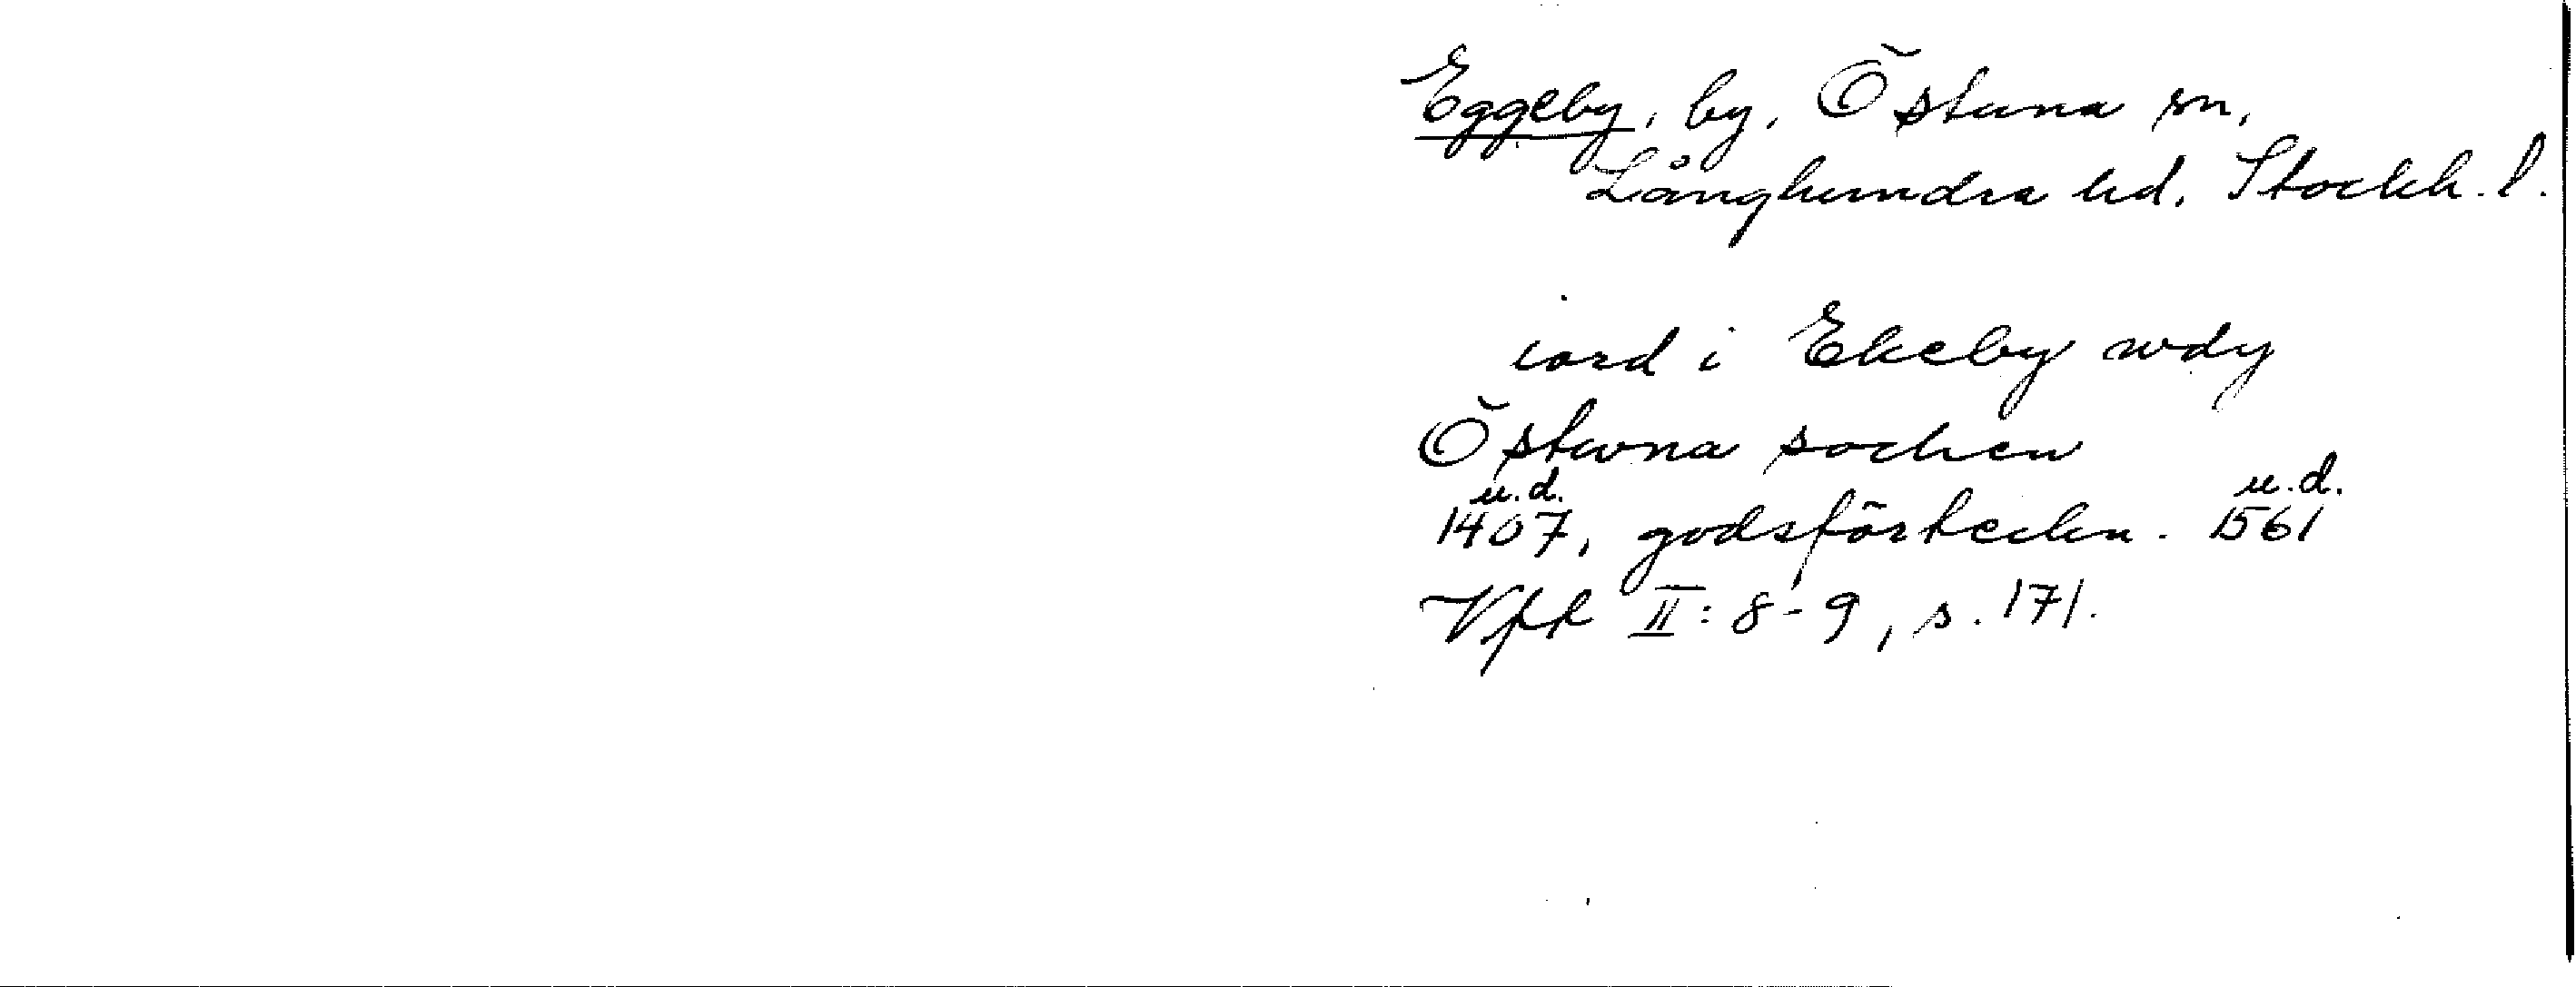 Eggeby, by, Östuna sn,
Långhundra hd. Stockh. l.
iord i Ekeby wdy
Östwna sochen
u.d. u.d.
1407, godsförteckn. 1561
Vfk II: 8-9, s. 171.